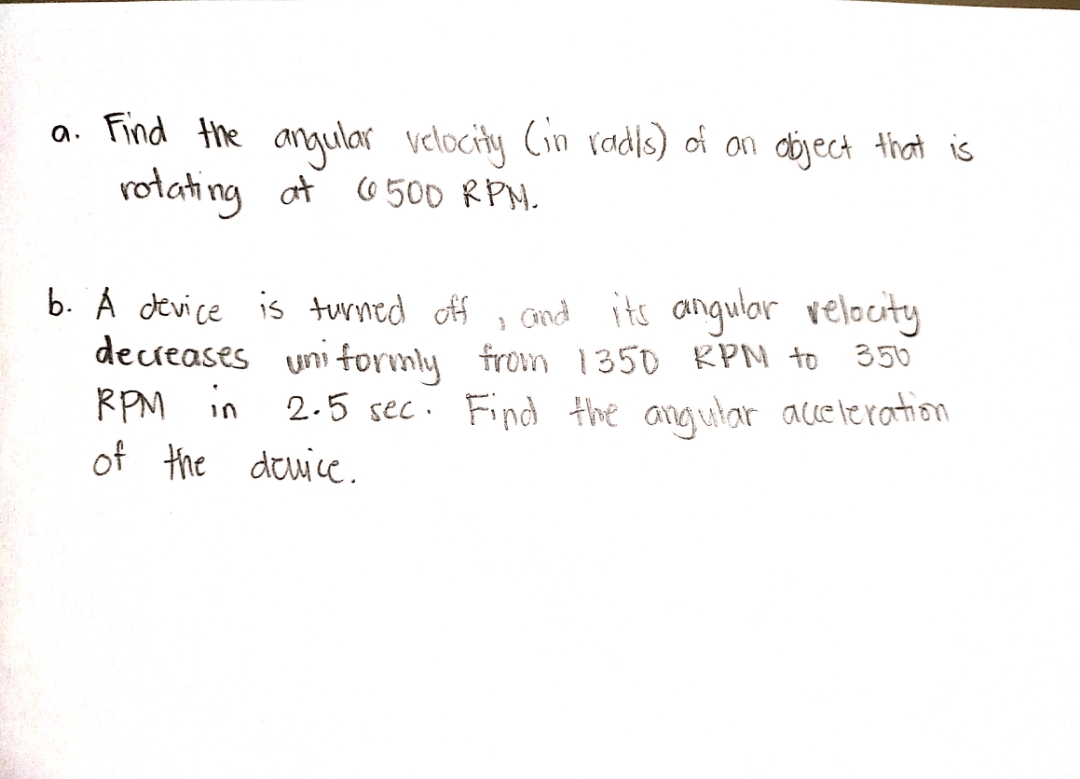 a. Find the angular velocity (in rad/s) of an object that is
rotating at 6500 RPM.
b. A device is turned off, and its angular velocity
decreases uniformly from 1350 RPM to 350
RPM in 2.5 sec. Find the angular acceleration
of the device.